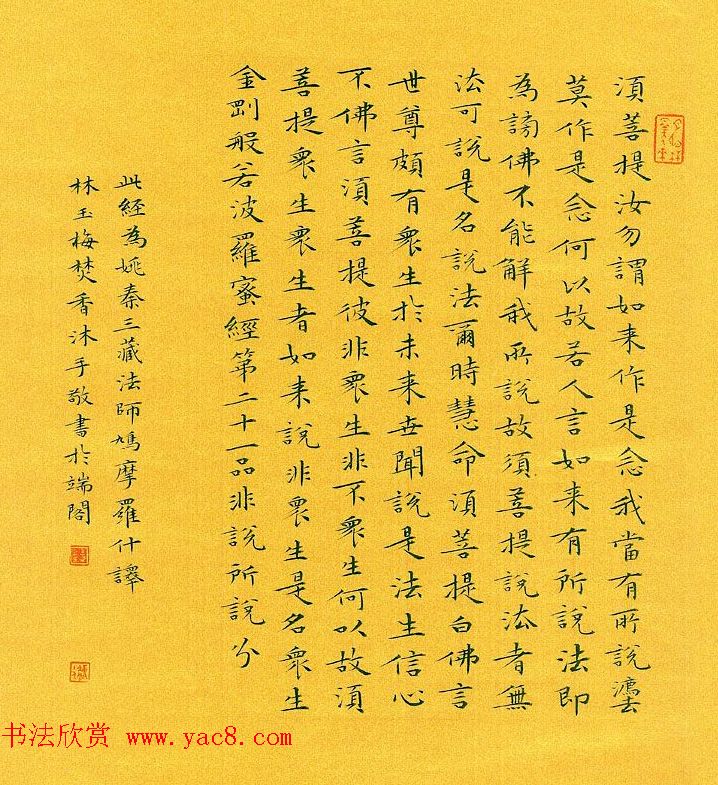 須菩提汝勿謂如来作是念我當有所說灋
莫作是念何以故若人言如来有所說法即
為謗佛不能解我所說故須菩提說法者無
法可說是名說法爾時慧命須菩提白佛言
世尊頗有衆生於未来世聞說是法生信心
不佛言須菩提彼非衆生非不衆生何以故須
菩提衆生衆生者如来說非衆生是名衆生
金剛般若波羅蜜經第二十一品非說所說分
此經為姚秦三藏法師鳩摩羅什譯
林玉梅焚香沐手敬書於端閣
书法欣赏 www.yac8.com